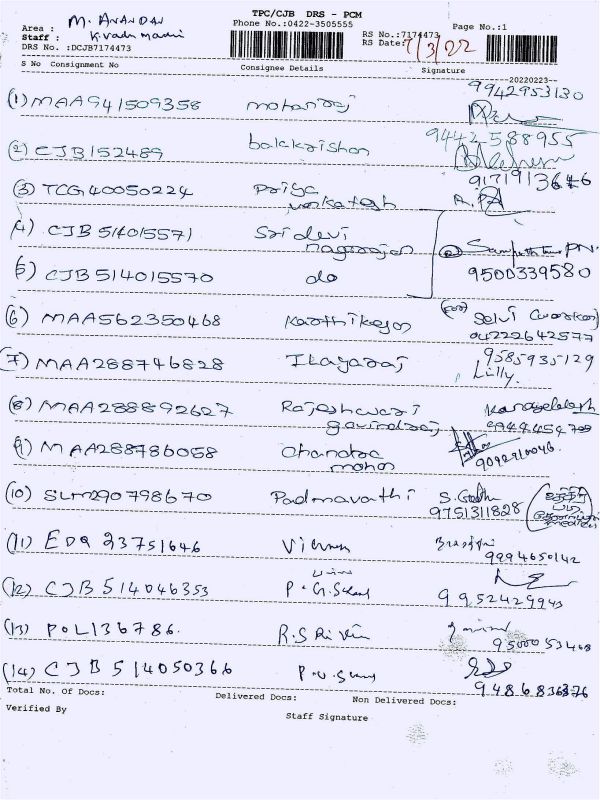 TPC/CJB DRS - PCM
Area : M. ANANDAN Phone No.:0422-3505555 Page No.:1
Staff : RS No.:7174473
DRS No. :DCJB7174473 RS Date: 7/3/22
S No Consignment No Consignee Details Signature
20220223--
9942953130
(1) MAA941509358 mohanraj
9442588955
(2) CJB152489 balakrishnan
9171913646
(3) TCG40050224 Priya
venkatesh
(4) CJB514015571 Sri devi
nagarajan Sampath PN.
(5) CJB514015570 do 9500339580
(6) MAA562350468 Karthikeyan (For) Selvi
04222642577
(7) MAA288746828 Ilayaraj 9585935129
Lilly.
(8) MAA288892627 Rajeshwari
govindraj
(9) MAA288786058 Chandra
mohan 9092910046.
(10) SLM290798670 Padmavathi S.
9751311828
(11) EDQ23751646 9994650142
(12) CJB514046353 9952429943
(13) POL136786. 9500053468
(14) CJB514050366
9486836376
Total No. of Docs: Delivered Docs: Non Delivered Docs:
Verified By
Staff Signature